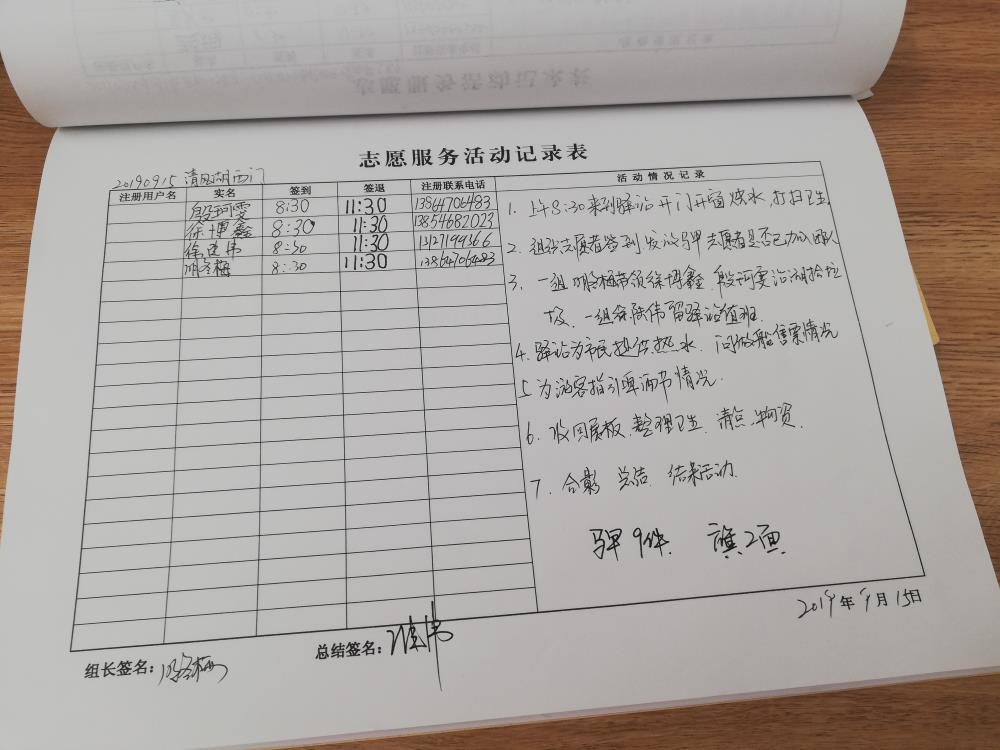 志愿服务活动记录表
20190915 清风湖西门
注册用户名 实名 签到 签退 注册联系电话 活动情况记录
殷珂雯 8:30 11:30 13864706483
徐博鑫 8:30 11:30 13854682023
徐建伟 8:30 11:30 13127199366
8:30 11:30 13864706483
1. 上午8:30来到驿站开门开窗烧水,打扫卫生
2. 组织志愿者签到 发放马甲 志愿者是否已加入团队
3. 一组 带领徐博鑫、殷珂雯沿湖捡垃
圾、一组徐建伟留驿站值班.
4. 驿站为市民提供热水、问做船售票情况
5. 为游客指引啤酒节情况.
6. 收回展板、整理卫生、清点物资.
7. 合影 总结 结束活动.
马甲9件. 旗2面
2019年9月15日
组长签名:
总结签名: